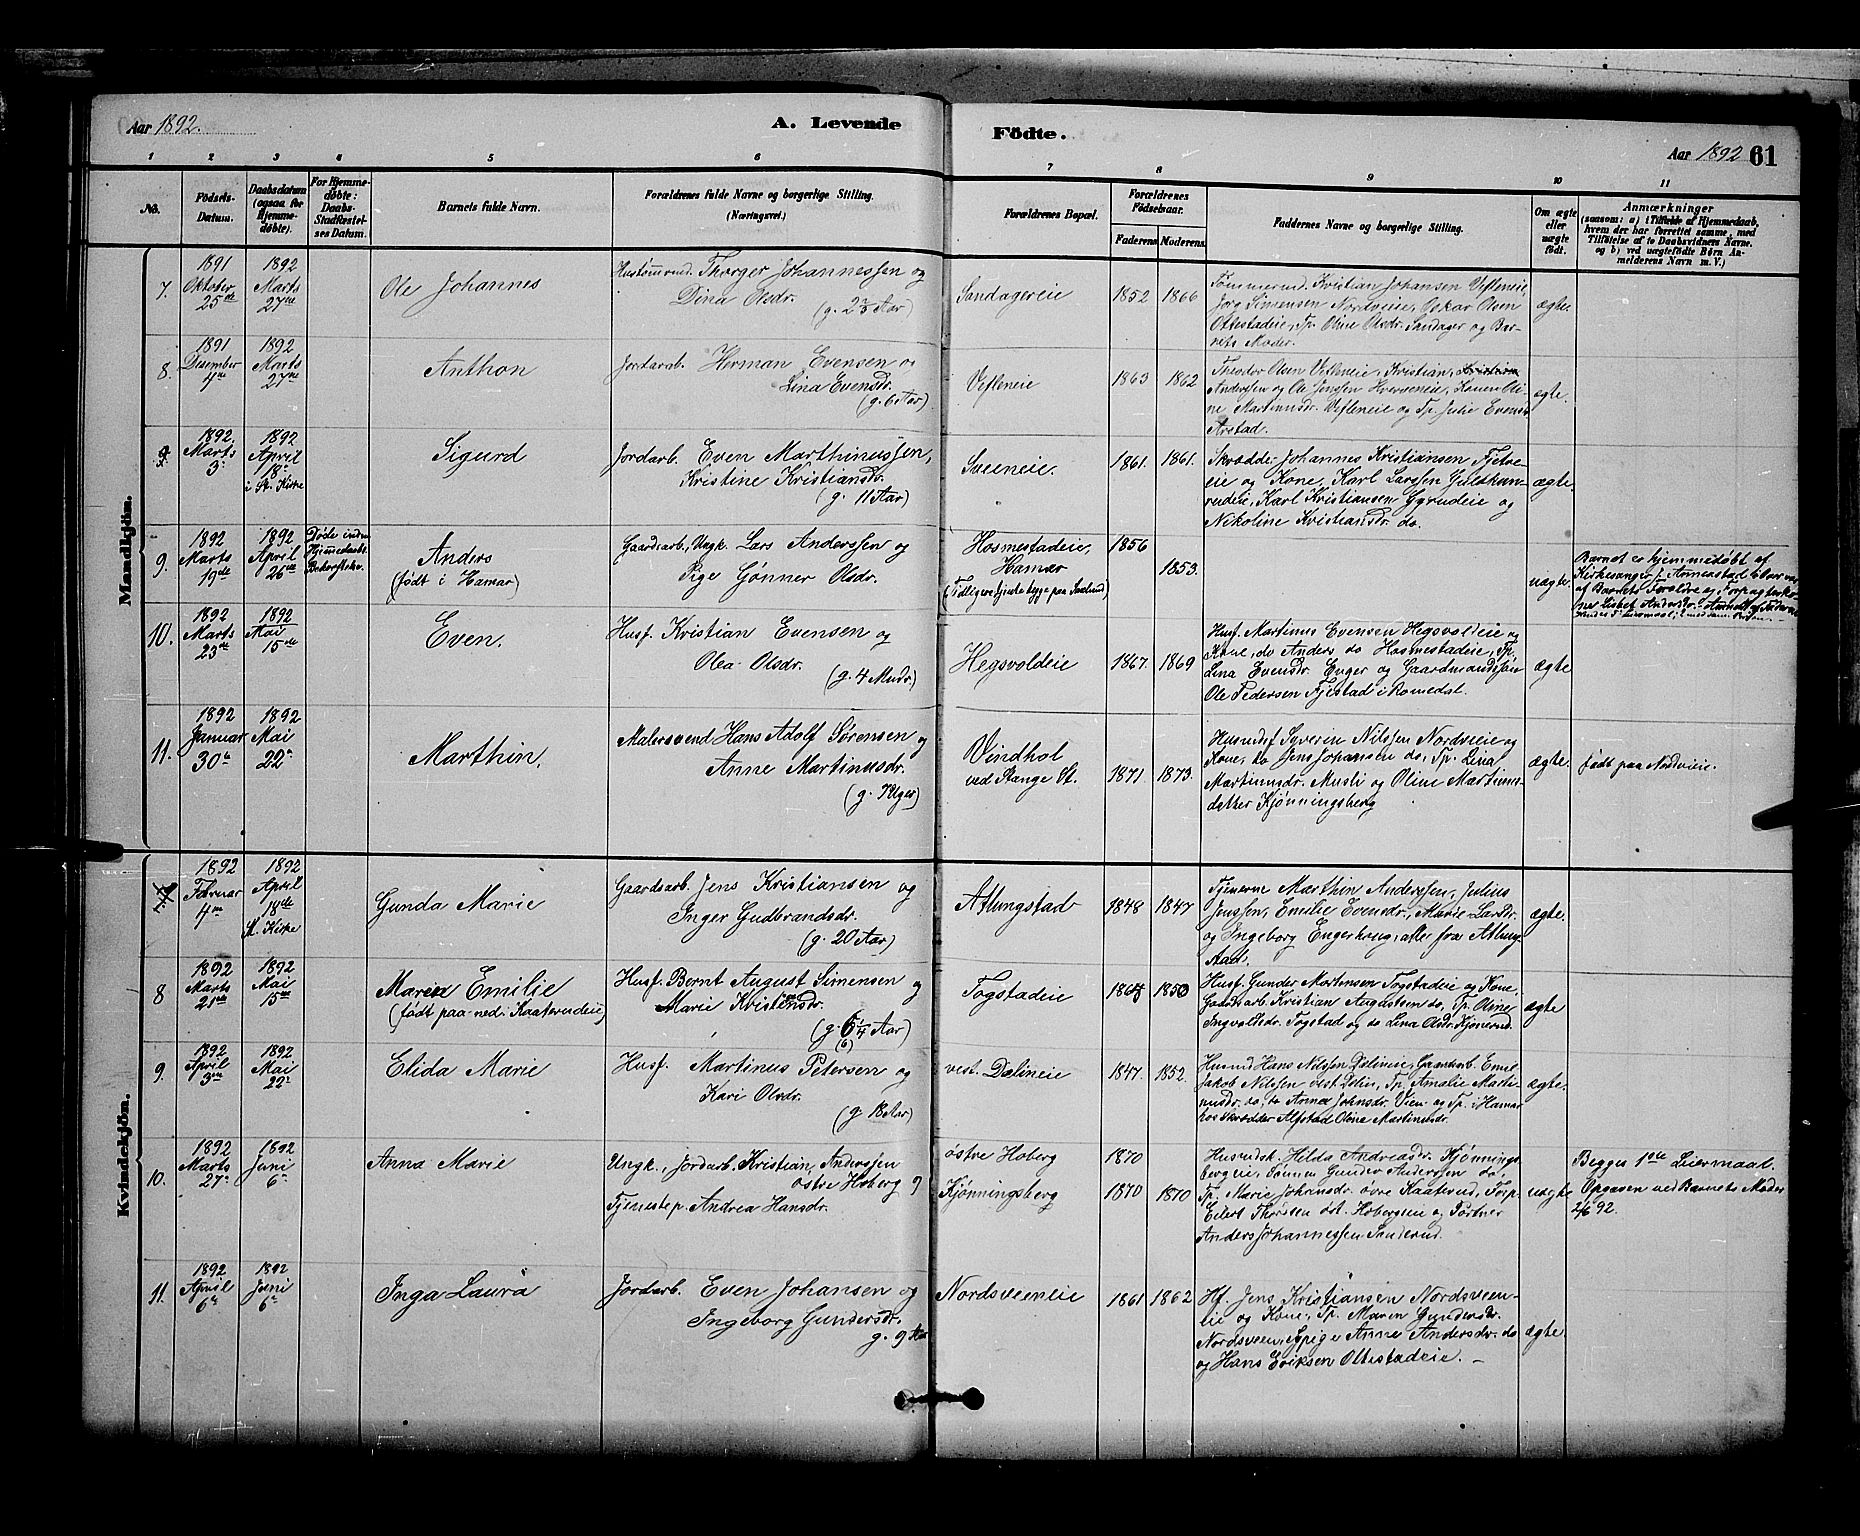 Aar 1892.
A. Levende
Födte.
Aar 1892 61
1 2 3 4 5 6 7 8 9 10 11
No.
Födsels-Datum.
Daabsdatum (ogsaa for Hjemme-döbte).
For Hjemme-döbte: Daabs-Stadfæstel-ses Datum.
Barnets fulde Navn.
Forældrenes fulde Navne og borgerlige Stilling.
(Næringsvei.)
Forældrenes Bopæl.
Forældrenes Födselsaar.
Faderens Moderens
Faddernes Navne og borgerlige Stilling.
Om ægte eller uægte födt.
Anmærkninger
(saasom: a) i Tilfælde af Hjemmedaab, hvem der har forrettet samme, med Tilföielse af to Daabsvidners Navne. og b) ved uægtefödte Börn An-melderens Navn m. V.)
Mandkjön.
7. 1891 Oktober 25de
1892 Marts 27de
Ole Johannes
Hustømrmd. Thorger Johannessen og
Dina Olsdr.
(g. 2 2/3 Aar)
Sandagereie
1852 1866
Tømmermd. Kristian Johansen Vefleneie,
Jørg. Simensen Nordsveie, Oskar Olsen
Ottestadeie, Tp. Oline Olsdr. Sandager og Bar-
nets Moder.
ægte.
8. 1891 Desember 4de
1892 Marts 27de
Anthon
Jordarb. Herman Evensen og
Lina Evensdr.
(g. 6 Aar)
Vefleneie
1863 1862
Theodor Olsen Vefleneie, Kristian
Anderssen og Ole Jenssen Hverveneie, Karen Oli-
ne Martinusdr. Vefleneie og Tp. Julie Evensdr.
Arstad.
ægte.
9. 1892. Marts 3.
1892 April 18. i St. Kirke
Sigurd
Jordarb. Even Marthinussen,
Kristine Kristiansdr.
(g. 11 Aar)
Sveeneie.
1861. 1861.
Skrædder Johannes Kristiansen Fjetre-
eie og Kone, Karl Larssen Guldhun-
rudeie, Karl Kristiansen Gyrudeie og
Nikoline Kristiansdr. do.
ægte.
9. 1892 Marts 19de
1892 April 26de
Døde inden Hjemmedaabs. Bekræftelse.
Anders
(født i Hamar)
Gaardsarb., Ungk. Lars Anderssen og
Pige Gønner Olsdr.
Hosmestadeie,
Hamar
(Tidligere tjente begge paa Sælid)
1856
1853.
uægte.
Barnet er hjemmedøbt af
Kirkesanger J. Annestad
af Barnets Forældre
10. 1892 Marts 23de
1892 Mai 15de
Even.
Husf. Kristian Evensen og
Olea Olsdr.
(g. 4 Mndr.)
Hegsvoldeie
1867. 1869
Husf. Martinus Evensen Hegsvoldeie og
Kone, do Anders do Hosmestadeie, Tp.
Lina Evensdr. Enger og Gaardmandssøn
Ole Pedersen Fjestad i Romedal.
ægte
11. 1892 Januar 30te
1892 Mai 22.
Marthin.
Malersvend Hans Adolf Sørensen og
Anne Martinusdr.
(g. 7 Uger)
Vindhol
ved Stange St.
1871. 1873.
Husmdsf Syverin Nilssen Nordsveie og
Kone, do Jens Johansen do, Tp. Lina
Martinusdr. Musli og Oline Martinus-
datter Kjønningsberg
ægte.
født paa Nordsveie.
Kvindekjön.
7. 1892 Februar 4de
1892 April 18de St. Kirke
Gunda Marie
Gaardsarb. Jens Kristiansen og
Inger Gudbrandsdr.
(g. 20 Aar)
Atlungstad
1848 1847
Tjenerne Marthin Anderssen, Julius
Jenssen, Emilie Evensdr., Marie Larsdr.
og Ingeborg Engerhaug, alle fra Atlung-
stad.
ægte.
8 1892 Marts 21de
1892 Mai 15de
Maren Emilie
(født paa ned. Kaaterudeie)
Husf. Bernt August Simensen og
Marie Kristensdr.
(g. 6 1/4 Aar)
(6)
Togstadeie
1864 1850
Husf. Gunder Mortensen Togstadeie og Kone,
Gaardsarb Kristian Augustsen do, Tp. Oline
Ingvoldsdr. Togstad og do Lina Olsdr. Kjønerud.
ægte
9. 1892 April 3de
1892 Mai 22.
Elida Marie
Husf. Martinus Petersen og
Kari Olsdr.
(g. 18 Aar)
vest. Dælineie
1847. 1852.
Husmd Hans Nilssen Dælineie, Gaardsarb. Emil
Jakob Nilssen vest. Dælin, Tp. Amalie Marti-
nusdr. do, do Anna Johnsdr. Vien og Tp. i Hamar
hos Skrædder Alfstad Olina Martinusdr.
ægte.
10. 1892 Marts 27.
1892 Juni 6.
Anna Marie
Ungk., Jordarb. Kristian Anderssen
østre Hoberg og
Tjenestep. Andrea Hansdr.
østre Hoberg
Kjønningsberg
1870
1870 1870
Husmdsk. Hilda Andreasdr. Kjønnings-
bergeie, Tømm Gunder Anderssen do,
Tp. Marie Johansdr. øvre Kaaterud, Forp.
Eilert Thorsen øst. Hobergseie og Portner
Anders Johannessen Sanderud.
uægte
Begges 1ste Leiermaal.
Opgaven ved Barnets Moder
2/6 92.
11. 1892 April 6.
1892 Juni 6.
Inga Laura
Jordarb. Even Johansen og
Ingeborg Gundersdr.
g. 9 Aar
Nordsveenlie
1861 1862
Hf. Jens Kristiansen Nordsveen-
lie og Kone, Tp. Maren Gundersdr.
Nordsveen, Spige Anne Andersdr. do
og Hans Eriksen Ottestadeie. —
ægte.